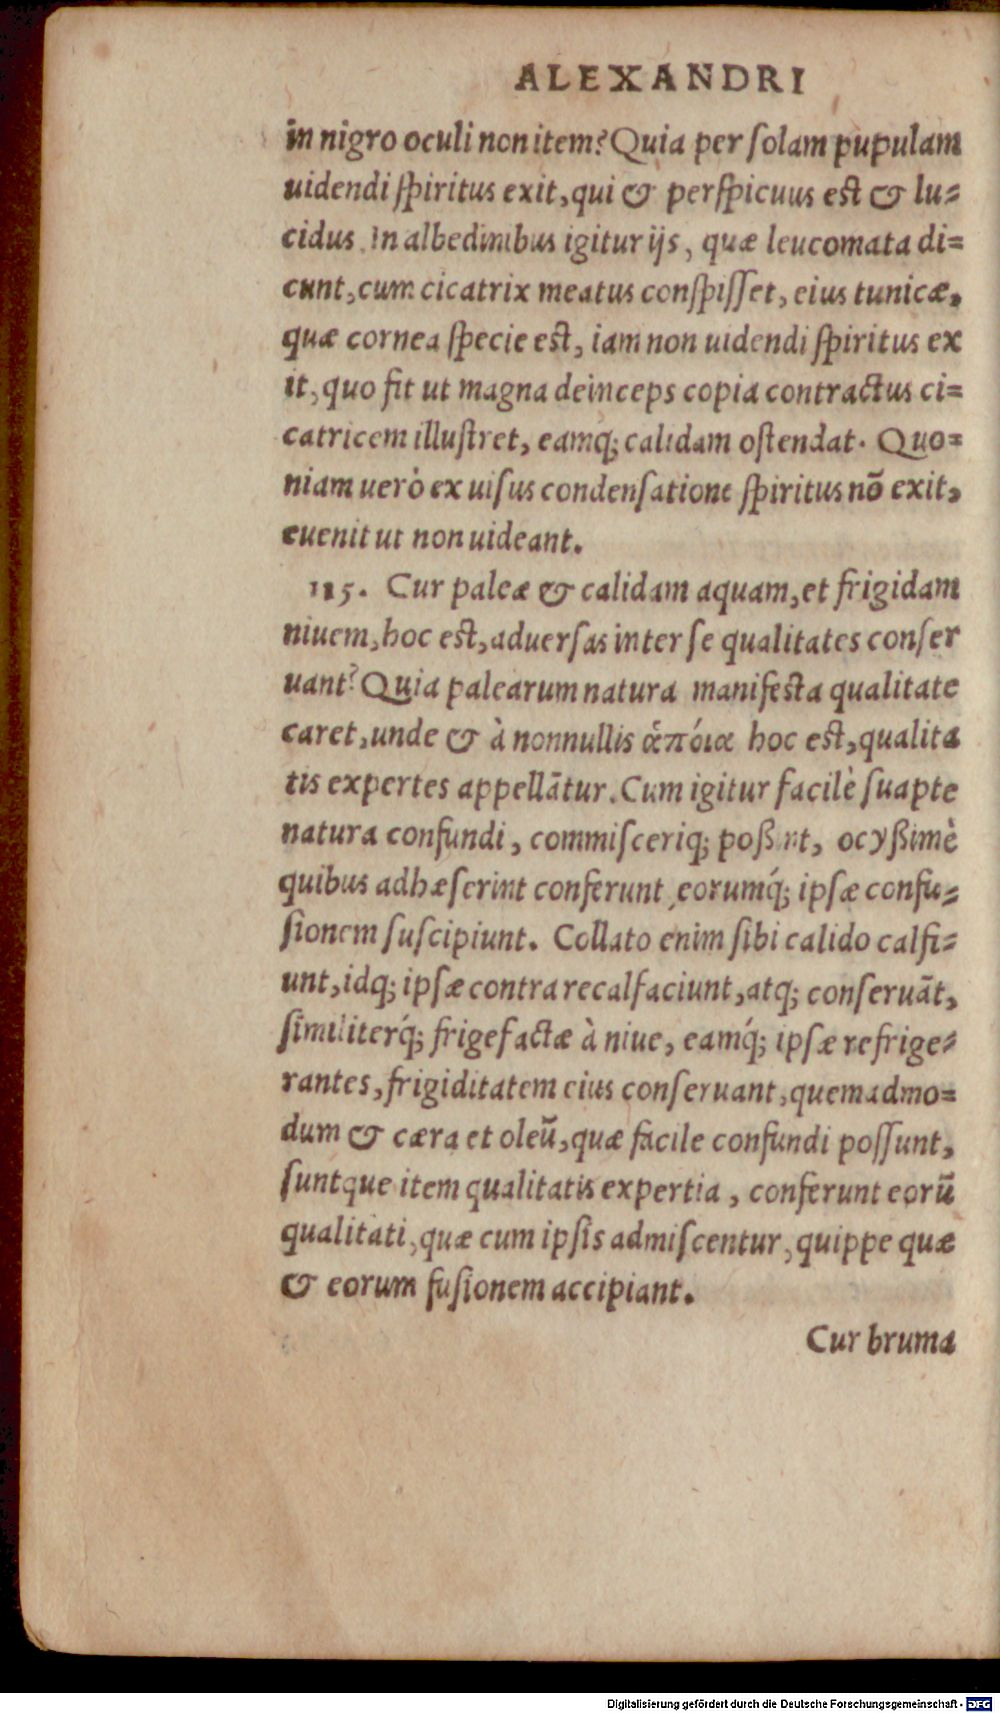 ALEXANDRI
in nigro oculi non item? Quia per ſolam pupulam
uidendi ſpiritus exit, qui & perſpicuus est & lu=
cidus. In albedinibus igitur ijs, quæ leucomata di=
cunt, cum cicatrix meatus conſpiſſet, eius tunicæ,
quæ cornea ſpecie est, iam non uidendi ſpiritus ex
it, quo fit ut magna deinceps copia contractus ci=
catricem illuſtret, eamq; calidam oſtendat. Quo=
niam uerò ex uiſus condenſatione ſpiritus nō exit,
euenit ut non uideant.
115. Cur paleæ & calidam aquam, et frigidam
niuem, hoc est, aduerſas inter ſe qualitates conſer
uant? Quia palearum natura manifeſta qualitate
caret, unde & à nonnullis ἄποια hoc est, qualita
tis expertes appellātur. Cum igitur facilè ſuapte
natura confundi, commiſceriq; poßint, ocyßimè
quibus adhæſerint conferunt, eorumq́; ipſæ confu=
ſionem ſuſcipiunt. Collato enim ſibi calido calfi=
unt, idq; ipſæ contra recalfaciunt, atq; conſeruāt,
ſimiliterq́; frigefactæ à niue, eamq́; ipſæ refrige=
rantes, frigiditatem eius conſeruant, quemadmo=
dum & cæra et oleū, quæ facile confundi poſſunt,
ſuntque item qualitatis expertia, conferunt eorū
qualitati, quæ cum ipſis admiſcentur, quippe quæ
& eorum fuſionem accipiant.
Cur bruma
Digitalisierung gefördert durch die Deutsche Forschungsgemeinschaft - DFG